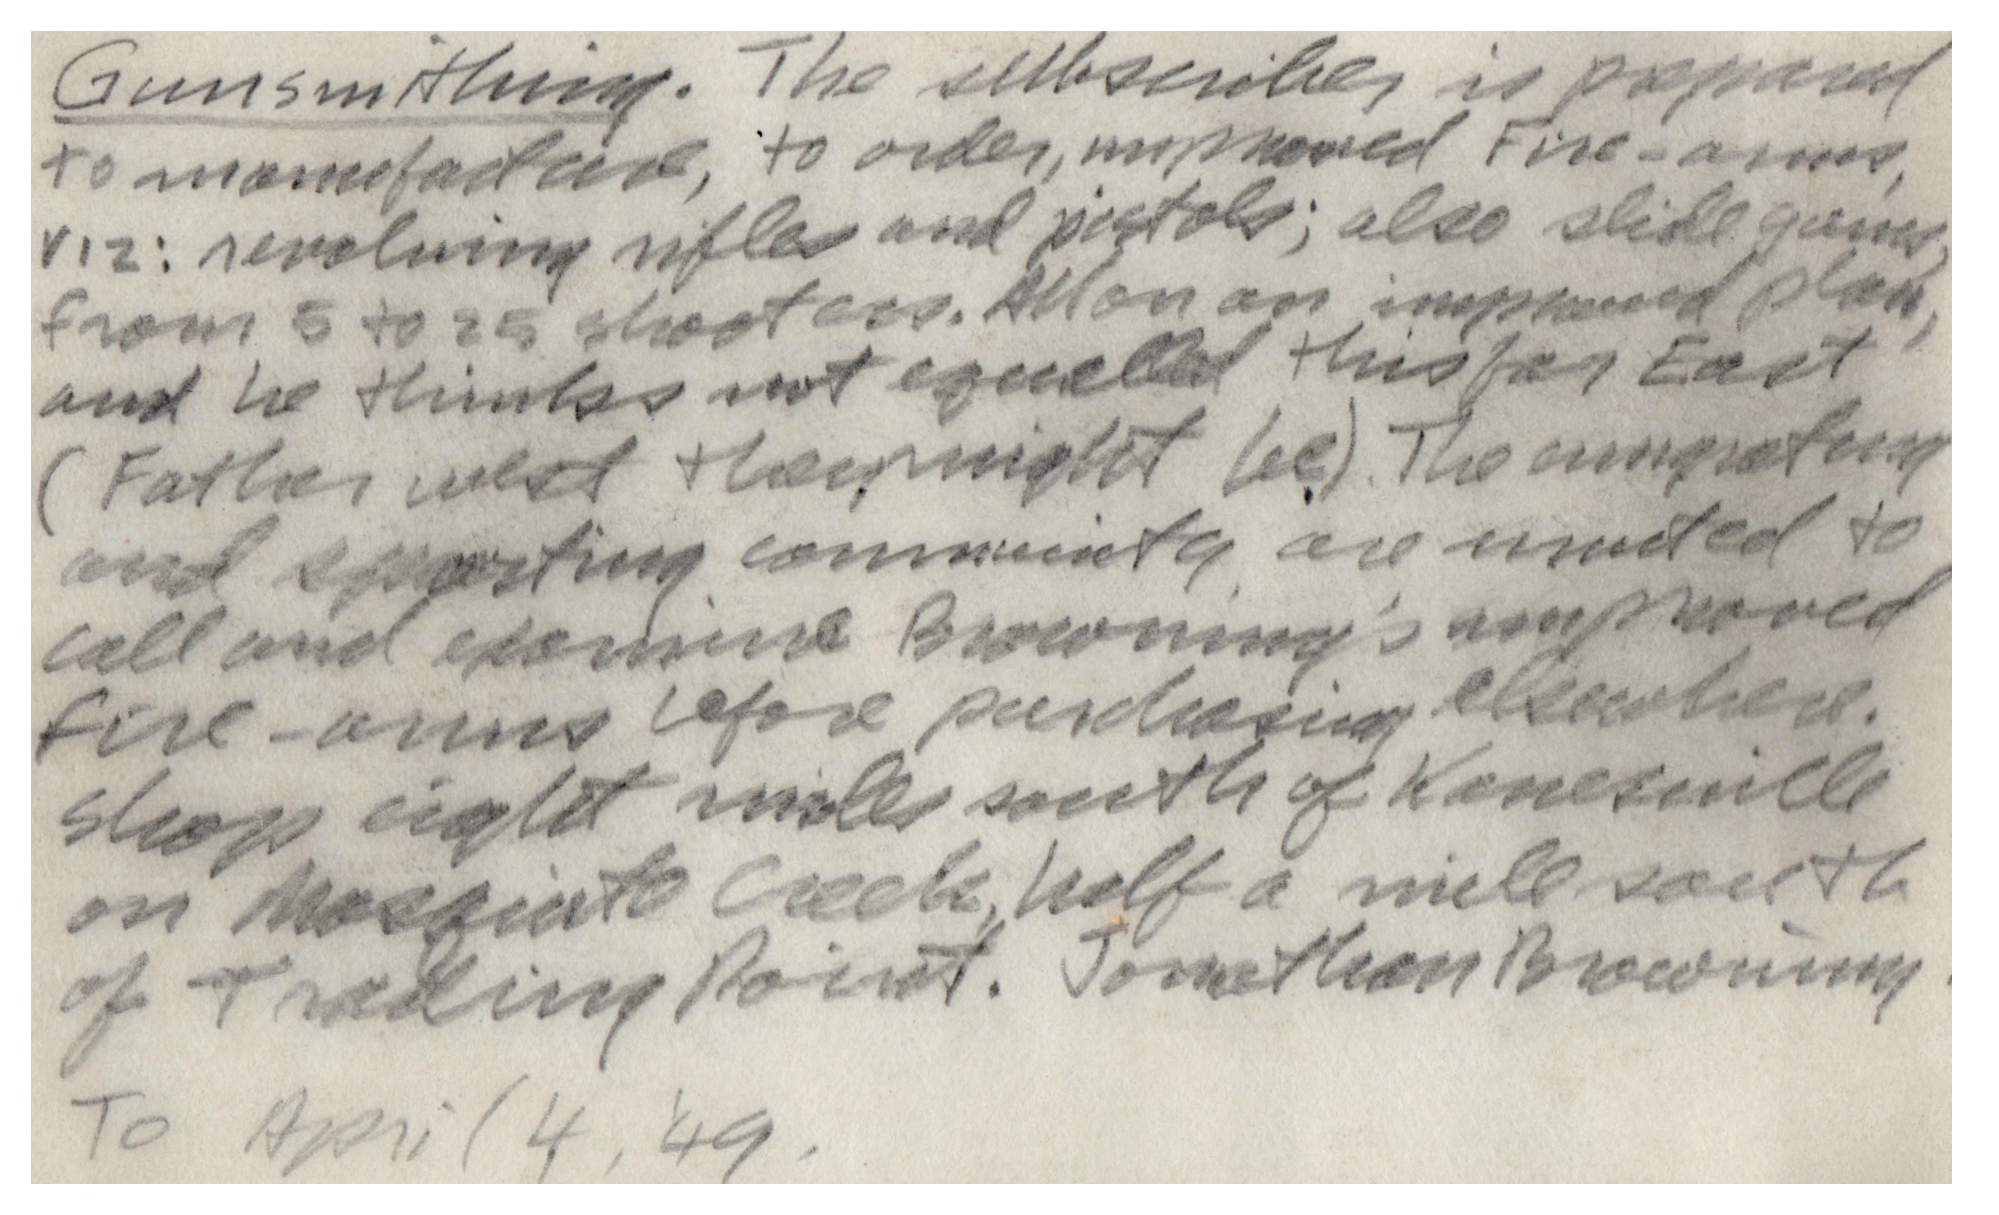 Gunsmithing. The subscriber is prepared
to manufacture, to order, improved Fire-arms,
viz: revolving rifles and pistols; also slide guns,
from 5 to 25 shooters. All on an improved plan,
and he thinks not equalled this far East
(Father west they might be). The emigrating
and sporting community are invited to
call and examine Browning's improved
fire-arms before purchasing elsewhere.
Shop eight miles south of Kanesville
on Mosquito Creek, half a mile south
of Trading Point. Jonathan Browning.
To April 4, '49.